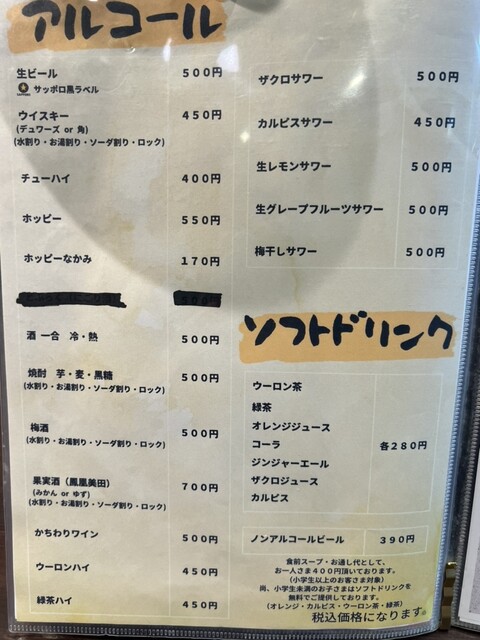 アルコール
生ビール ５００円
サッポロ黒ラベル
ウイスキー ４５０円
(デュワーズ or 角)
(水割り・お湯割り・ソーダ割り・ロック)
チューハイ ４００円
ホッピー ５５０円
ホッピーなかみ １７０円
酒 一合 冷・熱 ５００円
焼酎 芋・麦・黒糖 ５００円
(水割り・お湯割り・ソーダ割り・ロック)
梅酒 ５００円
(水割り・お湯割り・ソーダ割り・ロック)
果実酒（鳳凰美田） ７００円
(みかん or ゆず)
(水割り・お湯割り・ソーダ割り・ロック)
かちわりワイン ５００円
ウーロンハイ ４５０円
緑茶ハイ ４５０円
ザクロサワー ５００円
カルピスサワー ４５０円
生レモンサワー ５００円
生グレープフルーツサワー ５００円
梅干しサワー ５００円
ソフトドリンク
ウーロン茶
緑茶
オレンジジュース
コーラ 各２８０円
ジンジャーエール
ザクロジュース
カルピス
ノンアルコールビール ３９０円
食前スープ・お通し代として、
お一人さま４００円頂いております。
(小学生以上のお客さま対象)
尚、小学生未満のお子さまはソフトドリンクを
無料でご提供しております。
(オレンジ・カルピス・ウーロン茶・緑茶)
税込価格になります。